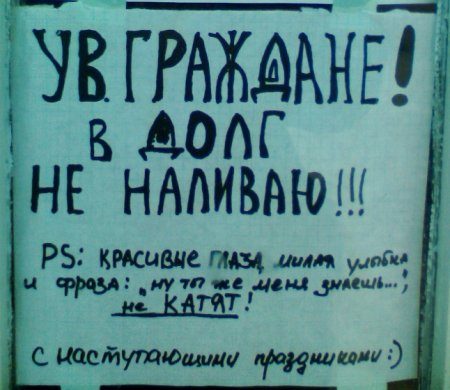 УВ. ГРАЖДАНЕ!
В ДОЛГ
НЕ НАЛИВАЮ!!!
PS: КРАСИВЫЕ ГЛАЗА, милая улыбка
и фраза: „ну ты же меня знаешь...",
не КАТЯТ!
с наступающими праздниками:)